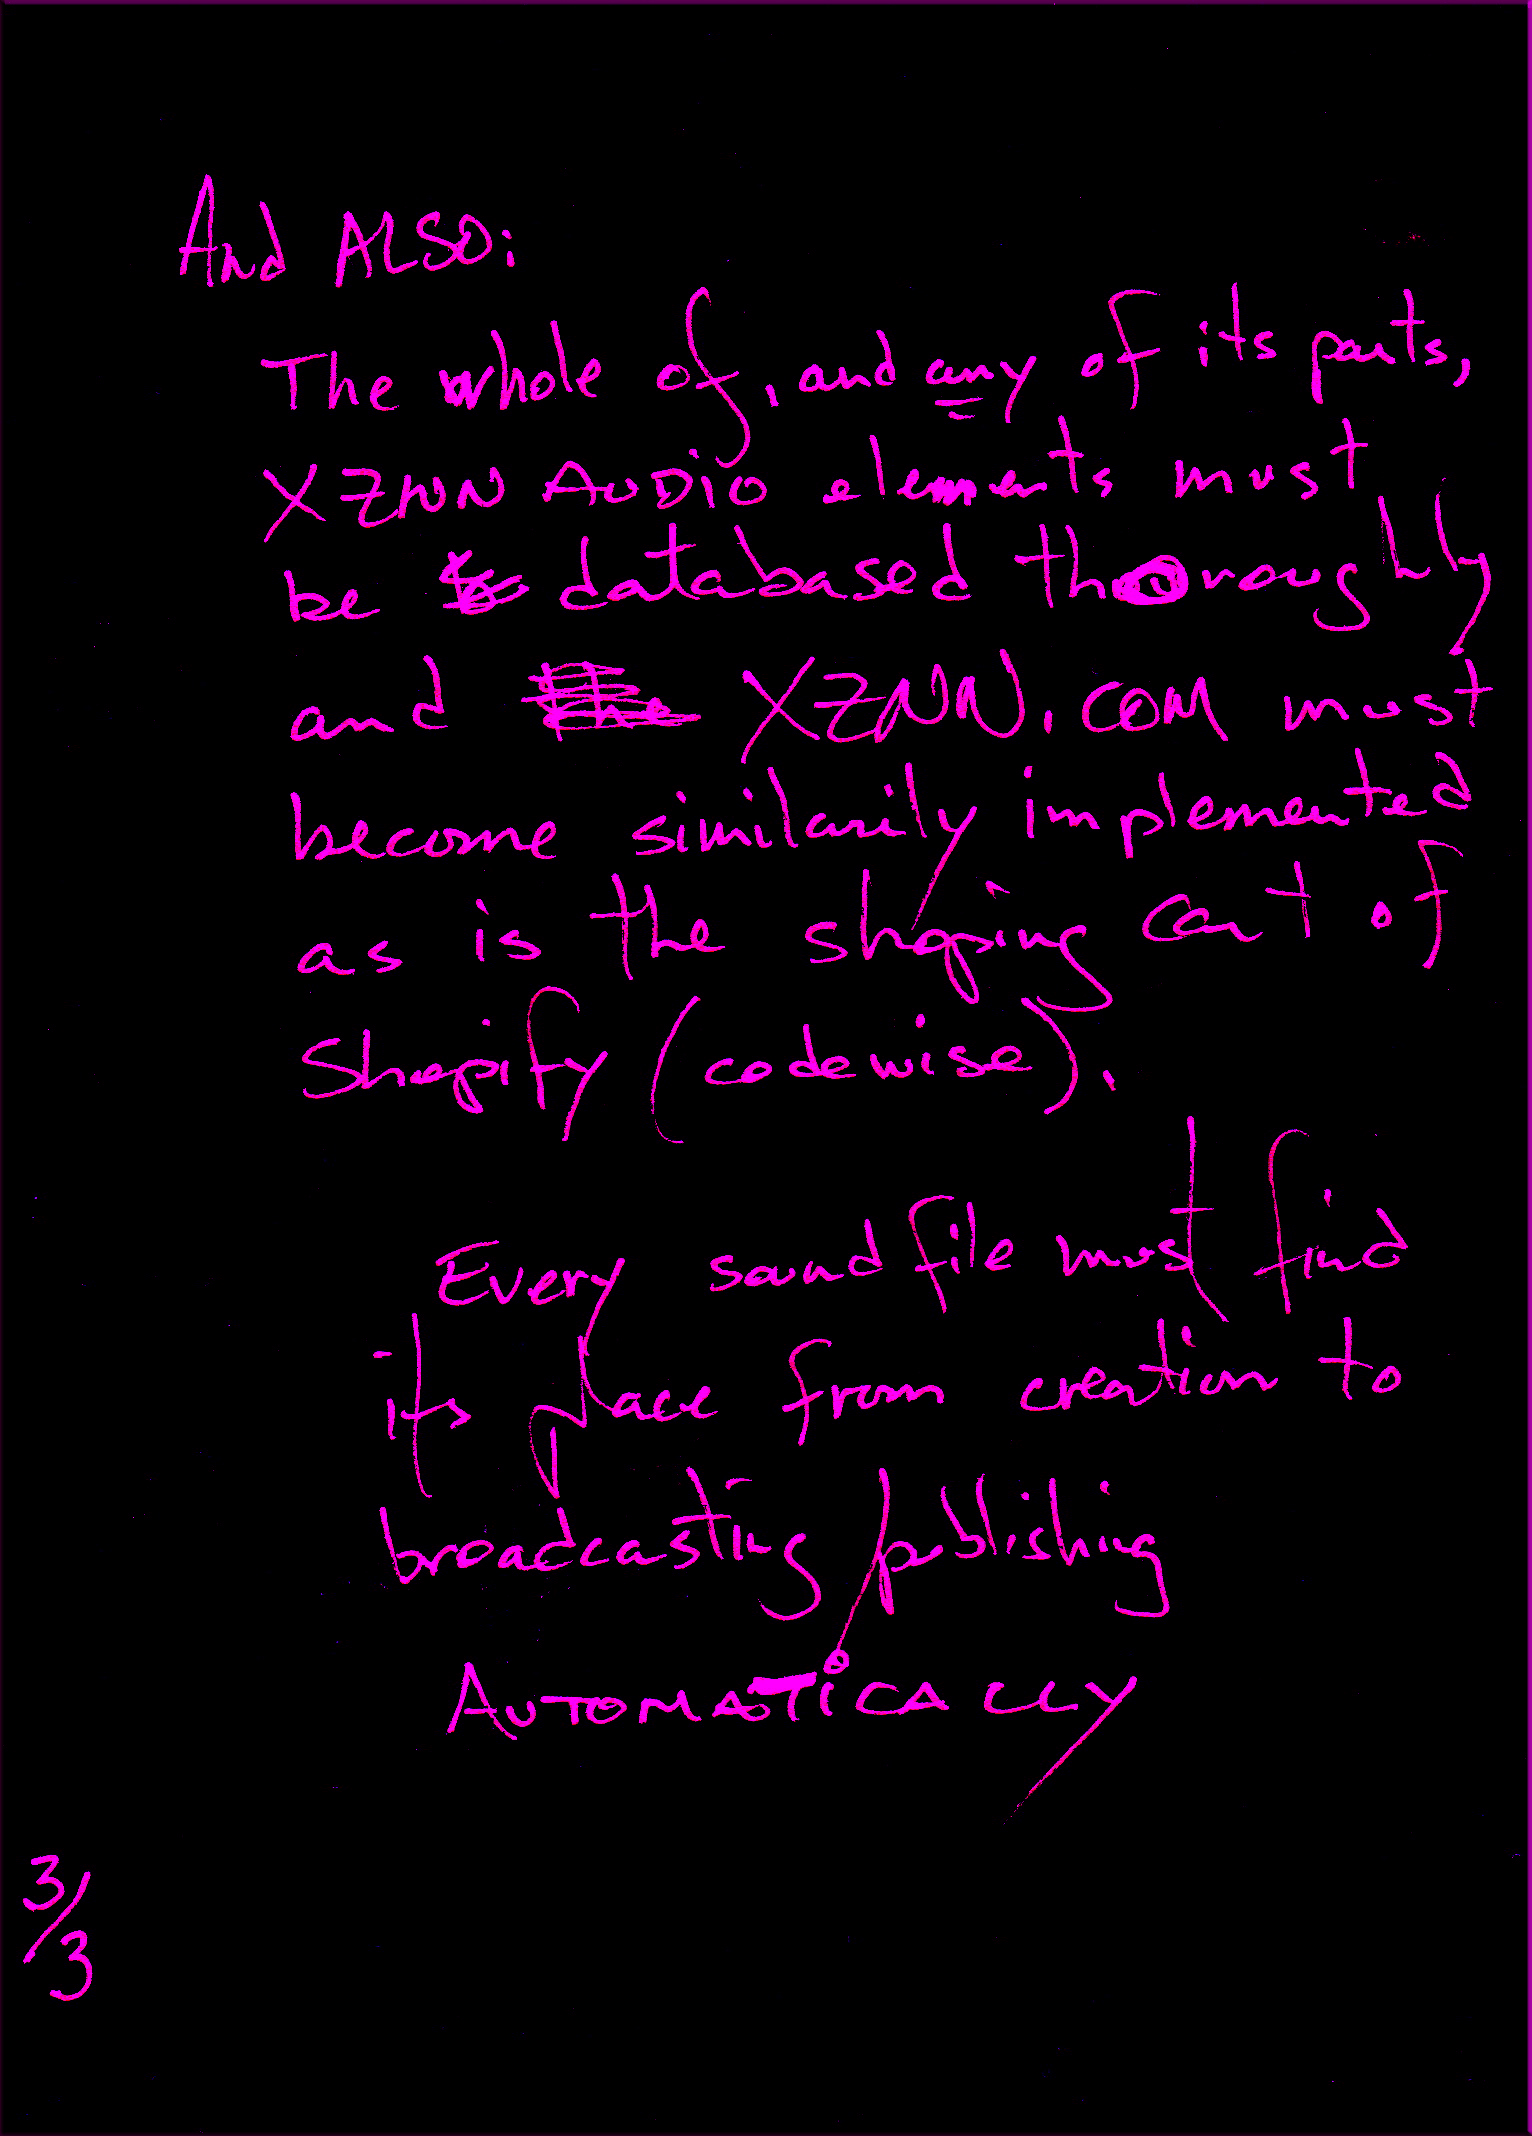 And ALSO:
The whole of, and any of its parts,
XZNN AUDIO elements must
be databased thoroughly
and XZNN.COM must
become similarily implemented
as is the shoping cart of
Shopify (codewise).
Every sound file must find
its place from creation to
broadcasting/publishing
AUTOMATICALLY
3/3